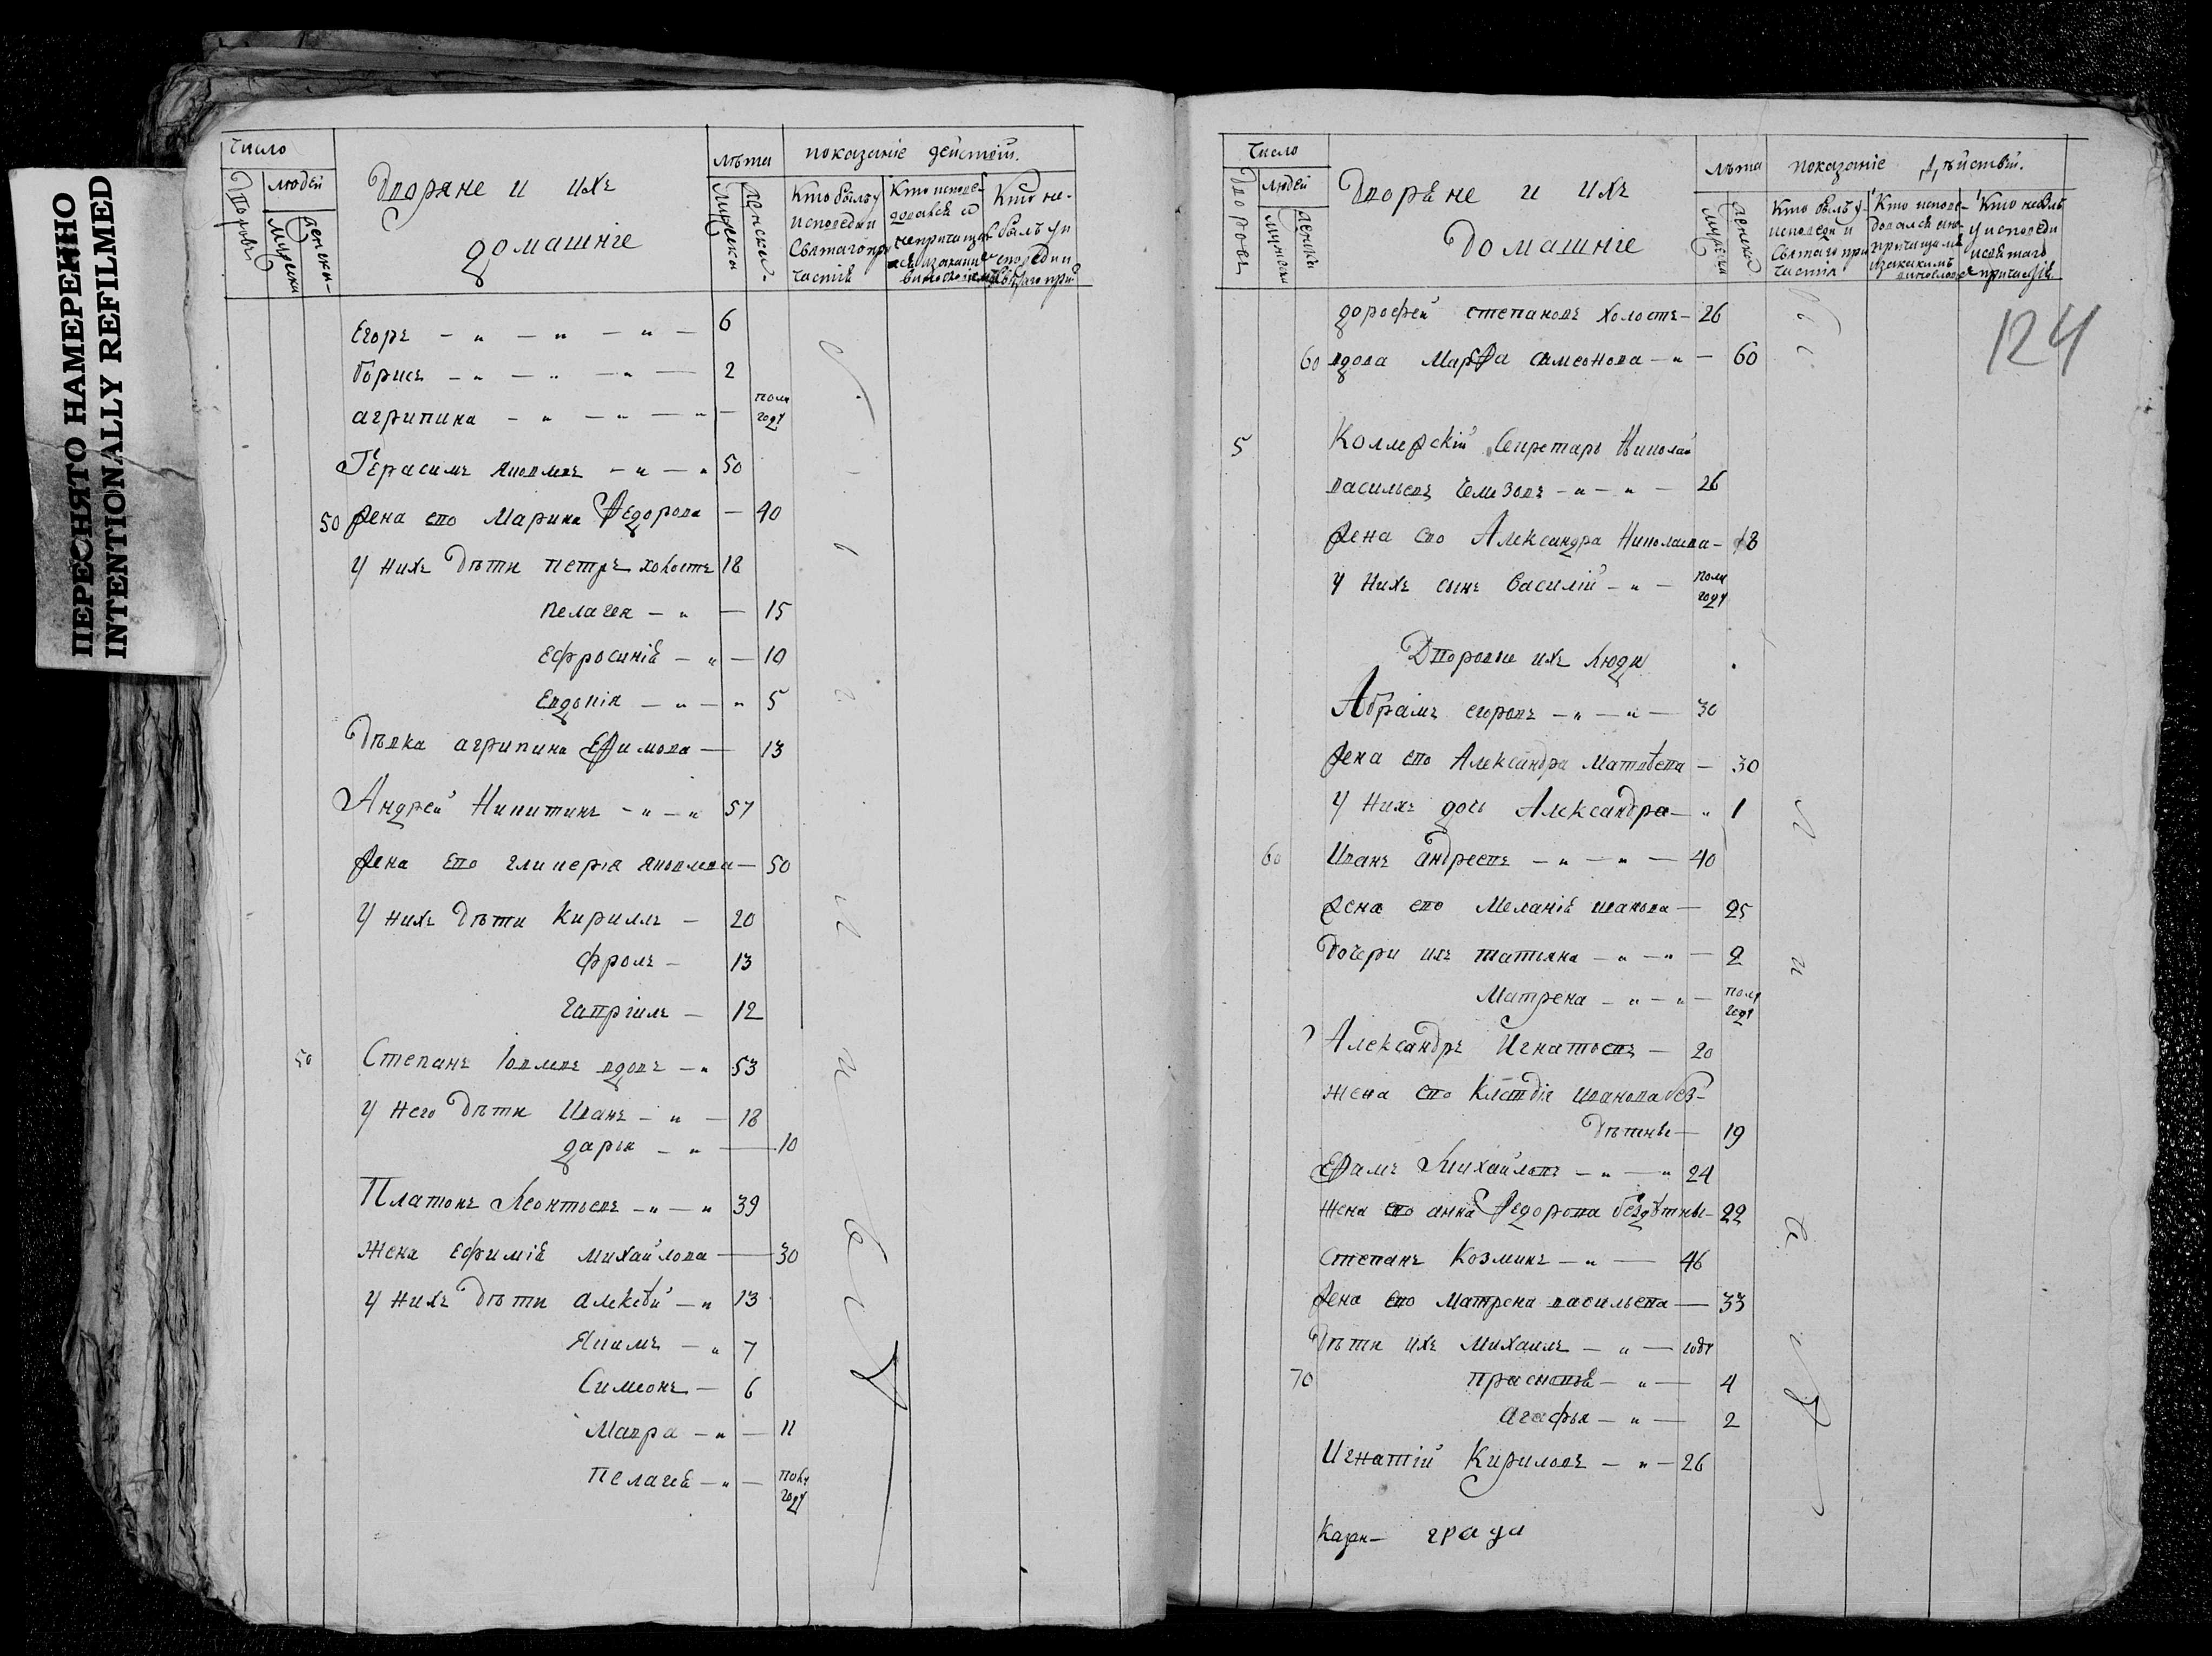 ПЕРЕСНЯТО НАМЕРЕННО
INTENTIONALLY REFILMED
Число
людей
Дворовъ
мужеска
женска
Дворяне и ихъ
домашніе
лѣта
мужеска
женска
показаніе действій.
Кто былъ у
исповеди и
Святаго при
частія
Кто испове-
довался а
не причащал
ся и за какимъ
винословіемъ
Кто не
былъ у и
споведи и
святаго при
Егоръ – „ – „ – „ – 6
Борисъ – „ – „ – „ – 2
агрипина – „ – „ – „ – полу
году
Герасимъ Яковлевъ – „ – „ 50
50 Жена ево Марина Ѳедорова – 40
У нихъ дѣти петръ холостъ 18
пелагея – „ – 15
Ефросинія – „ – 10
Евдокія – „ – „ 5
Дѣвка агрипина Еѳимова – 13
Андрей Никитинъ – „ – „ 57
Жена Ево гликерія яковлева – 50
У нихъ дѣти Кирилъ – 20
фролъ – 13
Гавріилъ – 12
50 Степанъ Іовлевъ вдовъ – „ 53
У него дѣти Иванъ – „ – 18
дарья – „ – 10
Платонъ Леонтьевъ – „ – „ 39
Жена Ефимія михайлова – 30
У нихъ дѣти алексѣй – „ 13
Якимъ – „ 7
Симеонъ – 6
Мавра – „ – 11
Пелагея – „ – полу
году
Число
людей
Дворовъ
мужеска
женска
Дворяне и ихъ
Домашніе
лѣта
мужеска
женска
показаніе дѣйствій.
Кто былъ у
исповеди и
Святаго при
частія
Кто испове-
довался а не
причащался
и за какимъ
винословіе
Кто небылъ
у исповеди
и святаго
причастія
124
дорофей степановъ холостъ – 26
60 вдова Марѳа симеонова – „ – 60
5 Коллежскій Секретарь Николай
васильевъ – „ – „ – 26
Жена ево Александра Николаева – 18
У нихъ сынъ Василій – „ – полу
году
Дворовые ихъ люди
Абрамъ егоровъ – „ – „ – 30
Жена ево Александра Матвѣева – 30
У нихъ дочь Александра – „ 1
60 Иванъ андреевъ – „ – „ – 40
Жена ево Меланія иванова – 25
Дочери ихъ татьяна – „ – „ – 2
Матрена – „ – „ – полу
году
Александръ Игнатьевъ – 20
Жена ево Клавдія иванова без-
дѣтны – 19
Еѳимъ Михайловъ – „ – „ 24
Жена ево анна Ѳедорова бездѣтны – 22
Степанъ Козминъ – „ – 46
Жена ево Матрена васильева – 33
Дѣти ихъ Михаилъ – „ – году
70 Прасковья – „ – 4
Агафья – „ – 2
Игнатій Кириловъ – „ – 26
града